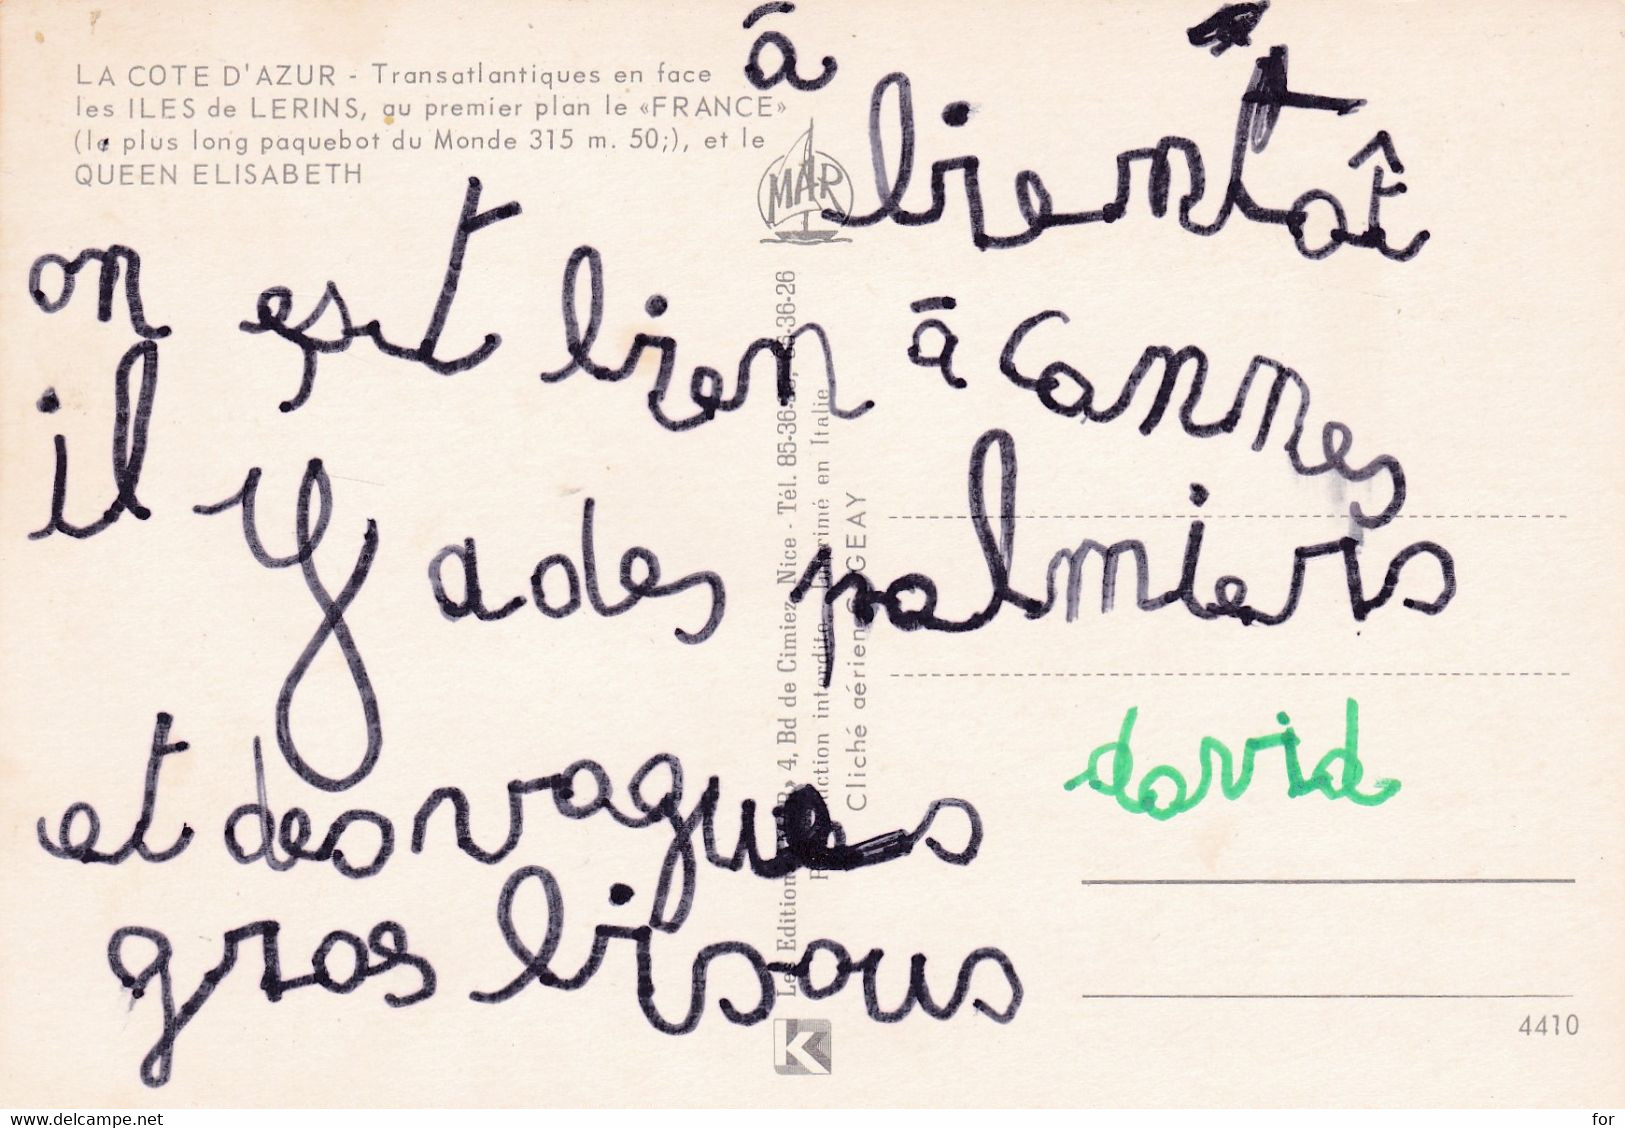 LA COTE D'AZUR - Transatlantiques en face
les ILES de LERINS, au premier plan le «FRANCE»
(le plus long paquebot du Monde 315 m. 50;), et le
QUEEN ELISABETH
MAR
à
bientôt
on est bien à Cannes
il y a des palmiers
et des vagues
gros bisous
david
4, Bd de Cimiez, Nice - Tél. 85-36-
36-26
interdite
en Italie
Cliché aérien
GEAY
K
4410
www.delcampe.net
for